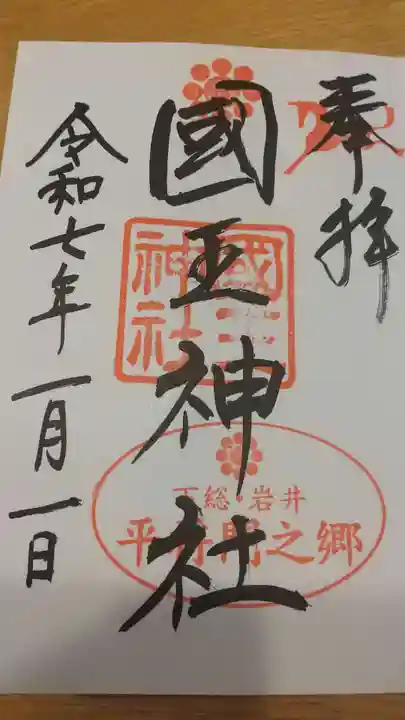 奉拝
國王神社
國王神社
下総・岩井
平将門之郷
令和七年一月一日